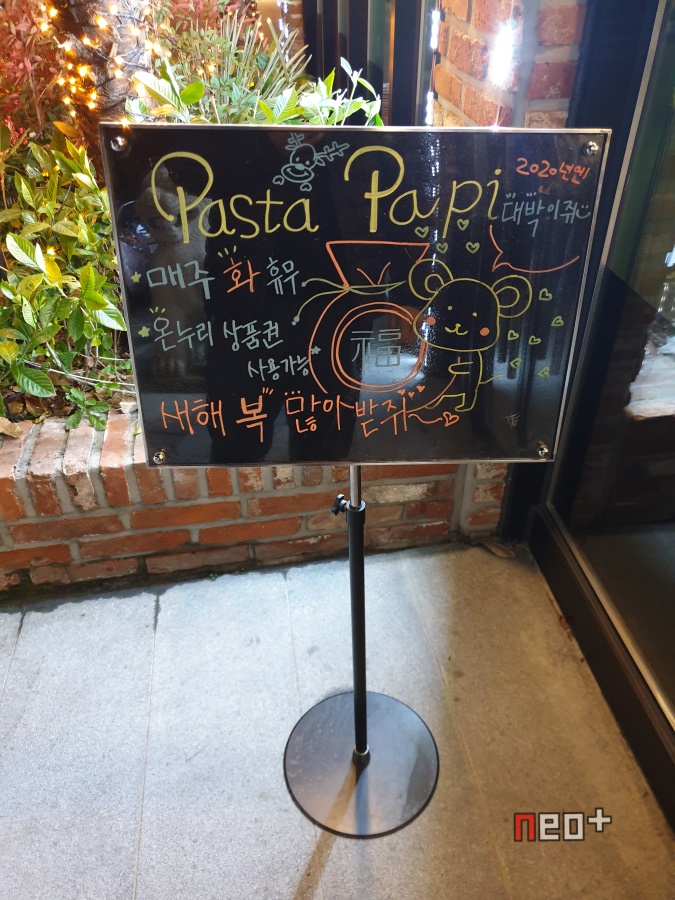 Pasta Papi
2020년엔
대박이쥐
매주 화 휴무
온누리 상품권
사용가능
福
새해 복 많아받쥐~
neo+